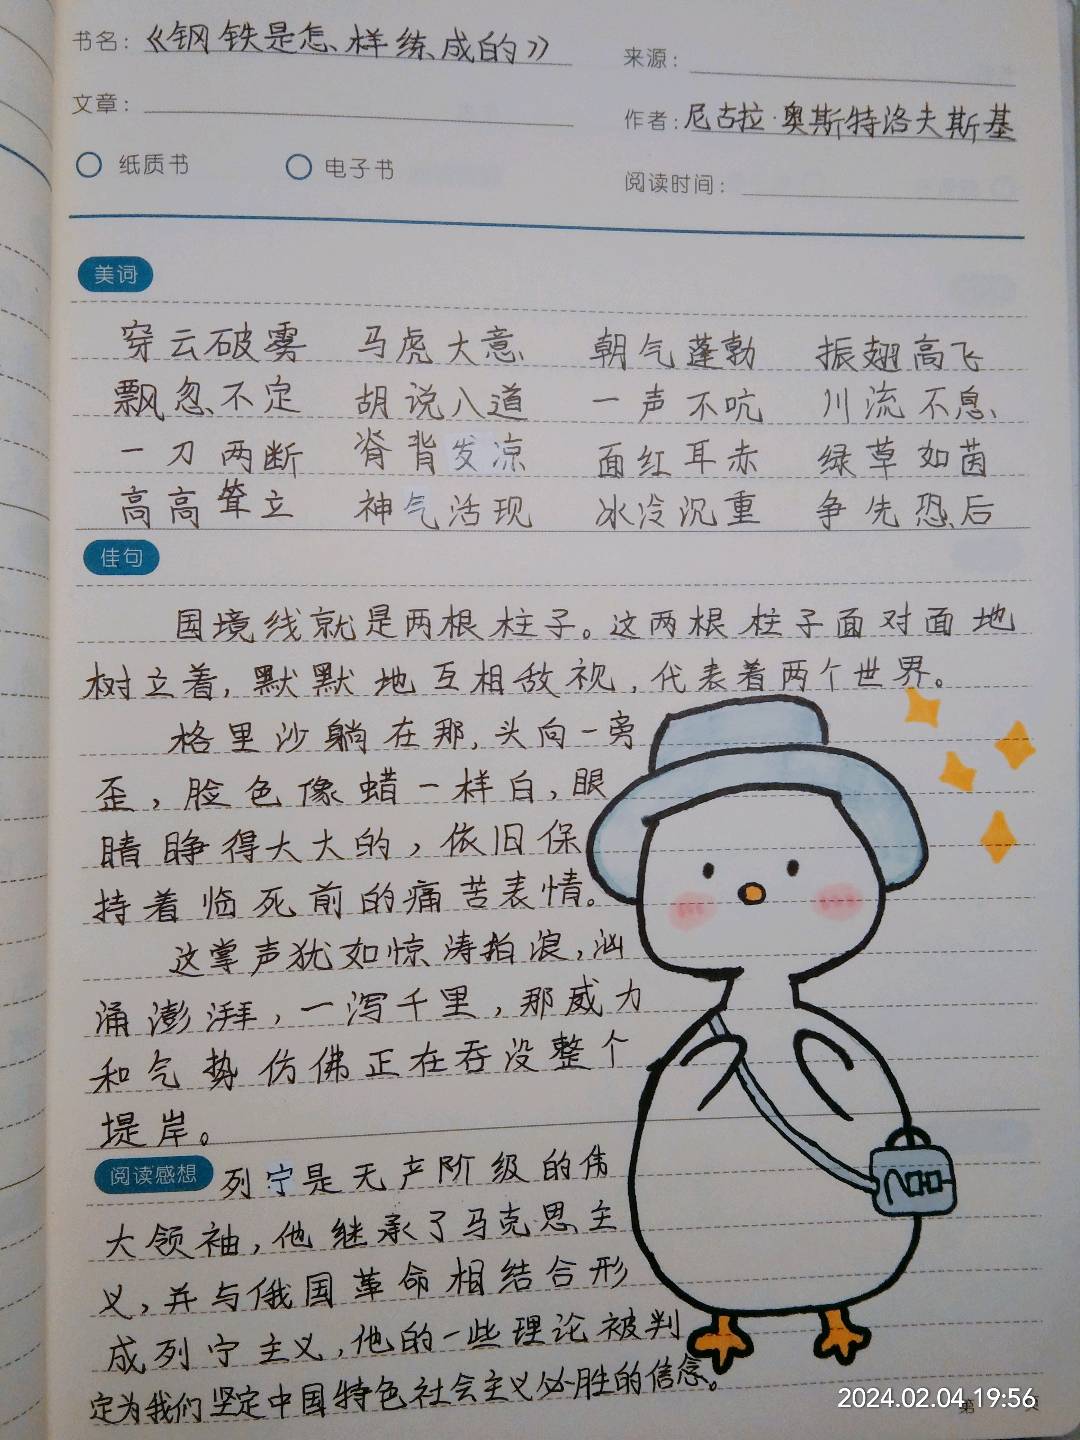 书名：《钢铁是怎样练成的》
来源：
文章：
作者：尼古拉·奥斯特洛夫斯基
纸质书 电子书
阅读时间：
美词
穿云破雾 马虎大意 朝气蓬勃 振翅高飞
飘忽不定 胡说八道 一声不吭 川流不息
一刀两断 脊背发凉 面红耳赤 绿草如茵
高高耸立 神气活现 冰冷沉重 争先恐后
佳句
国境线就是两根柱子。这两根柱子面对面地
树立着，默默地互相敌视，代表着两个世界。
格里沙躺在那，头向一旁
歪，脸色像蜡一样白，眼
睛睁得大大的，依旧保
持着临死前的痛苦表情。
这掌声犹如惊涛拍浪，汹
涌澎湃，一泻千里，那威力
和气势仿佛正在吞没整个
堤岸。
阅读感想 列宁是无产阶级的伟
大领袖，他继承了马克思主
义，并与俄国革命相结合形
成列宁主义，他的一些理论被判
定为我们坚定中国特色社会主义必胜的信念。
第 页
2024.02.04 19:56